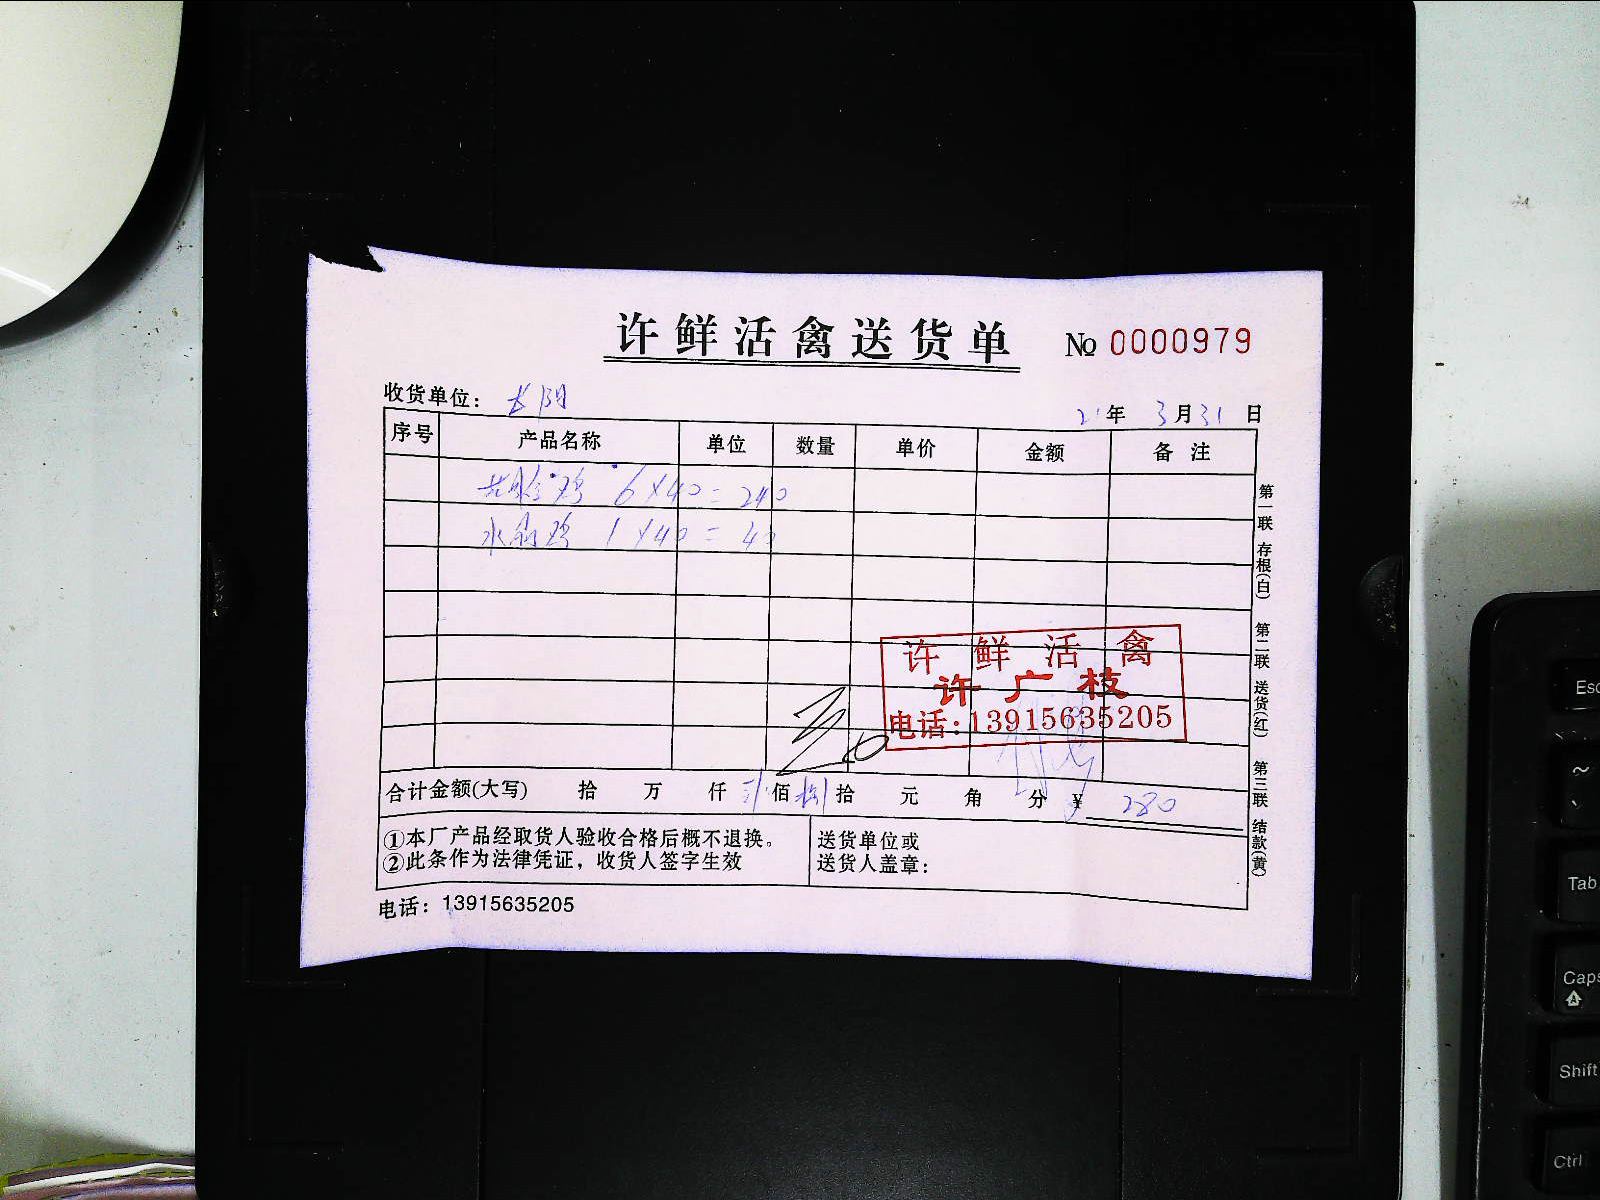 许鲜活禽送货单 № 0000979
收货单位：长阳
21年 3月31日
序号 产品名称 单位 数量 单价 金额 备注
鸡 6×40=240
水 鸡 1×40=40
许鲜活禽
许广枝
电话:13915635205
合计金额(大写) 拾 万 仟 贰佰捌拾 元 角 分 ¥ 280
①本厂产品经取货人验收合格后概不退换。
②此条作为法律凭证，收货人签字生效
送货单位或
送货人盖章：
电话：13915635205
第一联 存根(白) 第二联 送货(红) 第三联 结款(黄)
Esc
~
、
Tab
Caps
A
Shift
Ctrl